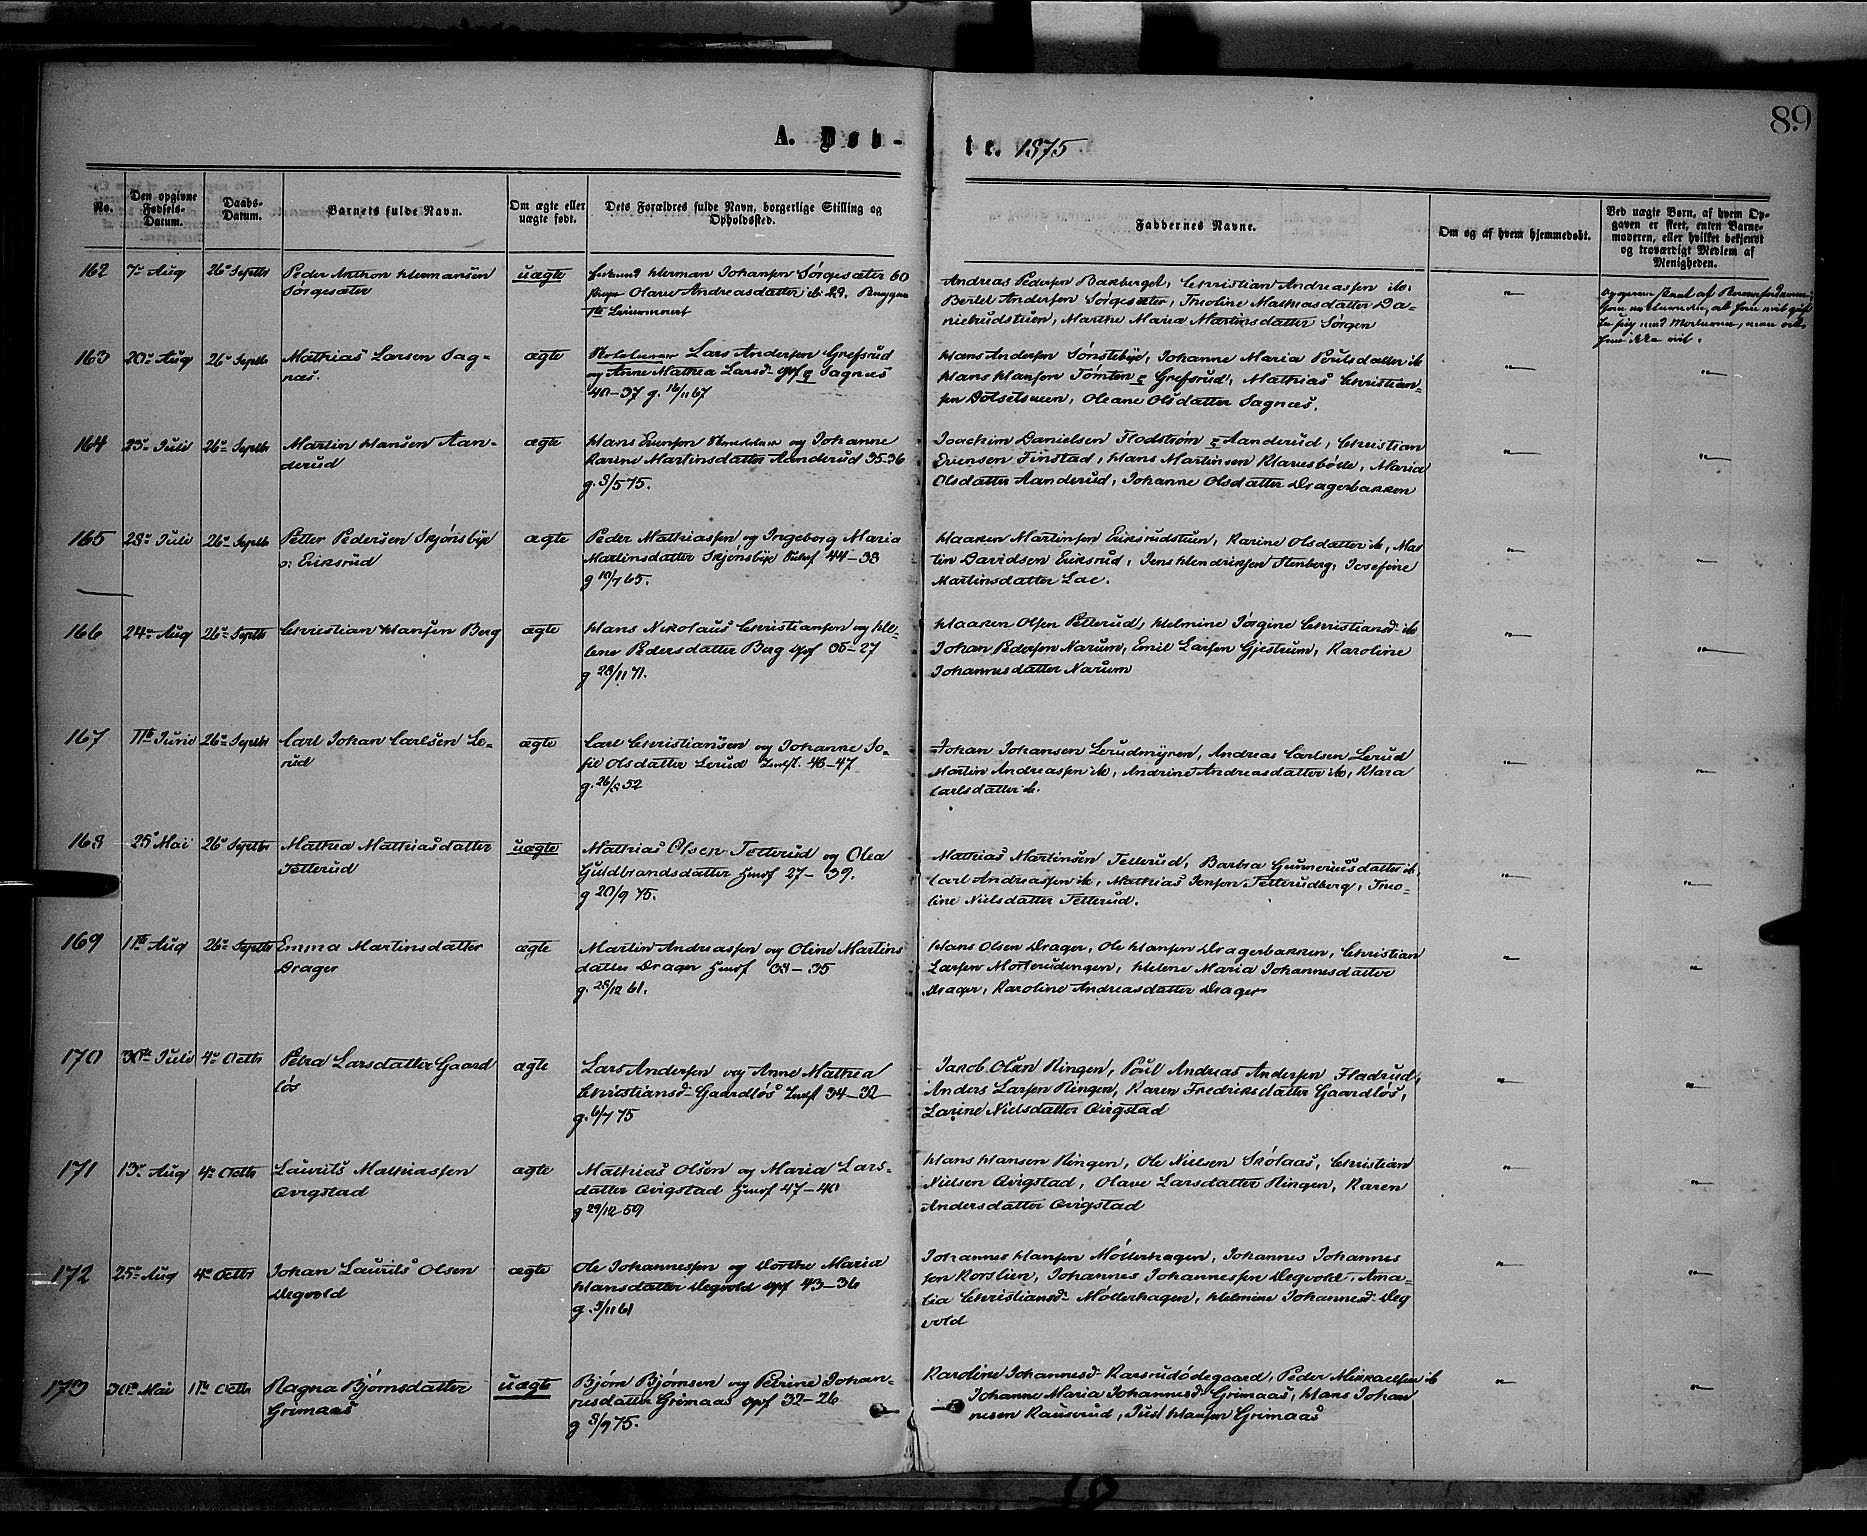 89
A. Døb-
te. 1875
No.
Den opgivne
Fødsels-
Datum.
Daabs-
Datum.
Barnets fulde Navn.
Om ægte eller
uægte født.
Dets Forældres fulde Navn, borgerlige Stilling og
Opholdssted.
Faddernes Navne.
Om og af hvem hjemmedøbt.
Ved uægte Børn, af hvem Op-
gaven er skeet, enten Barne-
moderen, eller hvilket bekjendt
og troværdigt Medlem af
Menigheden.
162 7de Aug 26de Septbr Peder Anthon Hermansen
Sørgesæter
uægte
Herman Johansen Sørgesæter 60
Pige Olave Andreasdatter ib: 29.
Andreas Pedersen Bakberget, Christian Andreassen ib.
Bertel Andersen Sørgesæter, Timoline Mathiasdatter Da-
nielrudstuen, Marthe Maria Martinsdatter Sørgen
163 20de Aug 26de Septbr Mathias Larsen Sag-
næs.
ægte
Lars Andersen Grefsrud
og Anne Mathea Larsd. Sagnæs
40-37 g. 16/11 67
Hans Andersen Sønstebye, Johanne Maria Poulsdatter ib
Hans Hansen Tømten Grefsrud, Mathias Christian-
sen Dolsetstuen, Oleane Olsdatter Sagnæs.
164 23de Juli 26de Septbr Martin Hansen Aan-
derud
ægte
Hans Evensen og Johanne
Karine Martinsdatter Aanderud 35-36
g. 3/5 75.
Joachim Danielsen Flodstrøm Aanderud, Christian
Evensen Finstad, Hans Martinsen Klavesbøle, Maria
Olsdatter Aanderud, Johanne Olsdatter Dragerbakken
165 28de Juli 26de Septbr Petter Pedersen Skjønsbye
o: Eriksrud
ægte
Peder Mathiassen og Ingeborg Maria
Martinsdatter Skjønsbye 44-38
g 10/7 65.
Haaken Martinsen Eriksrudstuen, Karine Olsdatter ib, Mar
tin Davidsen Eriksrud, Jens Hendriksen Stenberg, Josefine
Martinsdatter Lae.
166 24de Aug 26de Septbr Christian Hansen Berg
ægte
Hans Nikolaus Christiansen og He-
lene Pedersdatter Berg 35-27
g 28/11 71.
Haaken Olsen Petterud, Helmine Jørgine Christiansd. ib
Johan Pedersen Narum, Emil Larsen Gjestrum, Karoline
Johannesdatter Narum
167 11te Juni 26de Septbr Carl Johan Carlsen Le-
rud
ægte
Carl Christiansen og Johanne So-
fie Olsdatter Lerud 46-47
g. 26/ 52
Johan Johansen Lerudmyren, Andreas Carlsen Lerud
Martin Andreassen ib, Andrine Andreasdatter ib, Klara
Carlsdatter ib.
168 25de Mai 26de Septbr Mathea Mathiasdatter
Tetterud
uægte
Mathias Olsen Tetterud og Olea
Guldbrandsdatter 27-39.
g 20/9 75.
Mathias Martinsen Tetterud, Barbra Gunneriusdatter ib,
Carl Andreassen ib, Mathias Jensen Tetterudberg, Timo-
line Nielsdatter Tetterud.
169 11te Aug 26de Septbr Emma Martinsdatter
Drager
ægte
Martin Andreassen og Oline Martins
datter Drager 38-35
g. 28/12 61.
Hans Olsen Drager, Ole Hansen Dragerbakken, Christian
Larsen Morterudengen, Helene Maria Johannesdatter
Drager, Karoline Andreasdatter Drager
170 30te Juli 4de Octbr Petra Larsdatter Gaard
løs
ægte
Lars Andersen og Anne Mathea
Christiansd. Gaardløs 34-32
g. 6/7 75
Jakob Olsen Ringen, Poul Andreas Andersen Fladrud,
Anders Larsen Ringen, Karen Fredriksdatter Gaardløs,
Larine Nielsdatter Qvigstad
171 13de Aug 4de Octbr Laurits Mathiassen
Qvigstad
ægte
Mathias Olsen og Maria Lars-
datter Qvigstad 47-40
g 29/12 59
Hans Hansen Ringen, Ole Nielsen Skølaas, Christian
Nielsen Qvigstad, Olave Larsdatter Ringen, Karen
Andersdatter Qvigstad
172 25de Aug 4de Octbr Johan Laurits Olsen
Degvold
ægte
Ole Johannessen og Dorthe Maria
Hansdatter Degvold 43-36
g. 3/11 61
Johannes Hansen Møllerhagen, Johannes Johannes
sen Korslien, Johannes Johannessen Degvold, Ama-
lia Christiansd. Møllerhagen, Helmine Johannesd. Deg
vold
173 30te Mai 11te Octbr Ragna Bjørnsdatter
Grimaas
uægte
Bjørn Bjørnsen og Petrine Johan-
nesdatter Grimaas 32-26
g 3/9 75.
Karoline Johannesd. Karsrudødegaard, Peder Mikkaelsen ib
Johanne Maria Johannesd. Grimaas, Hans Johan
nesen Kausrud, Just Hansen Grimaas